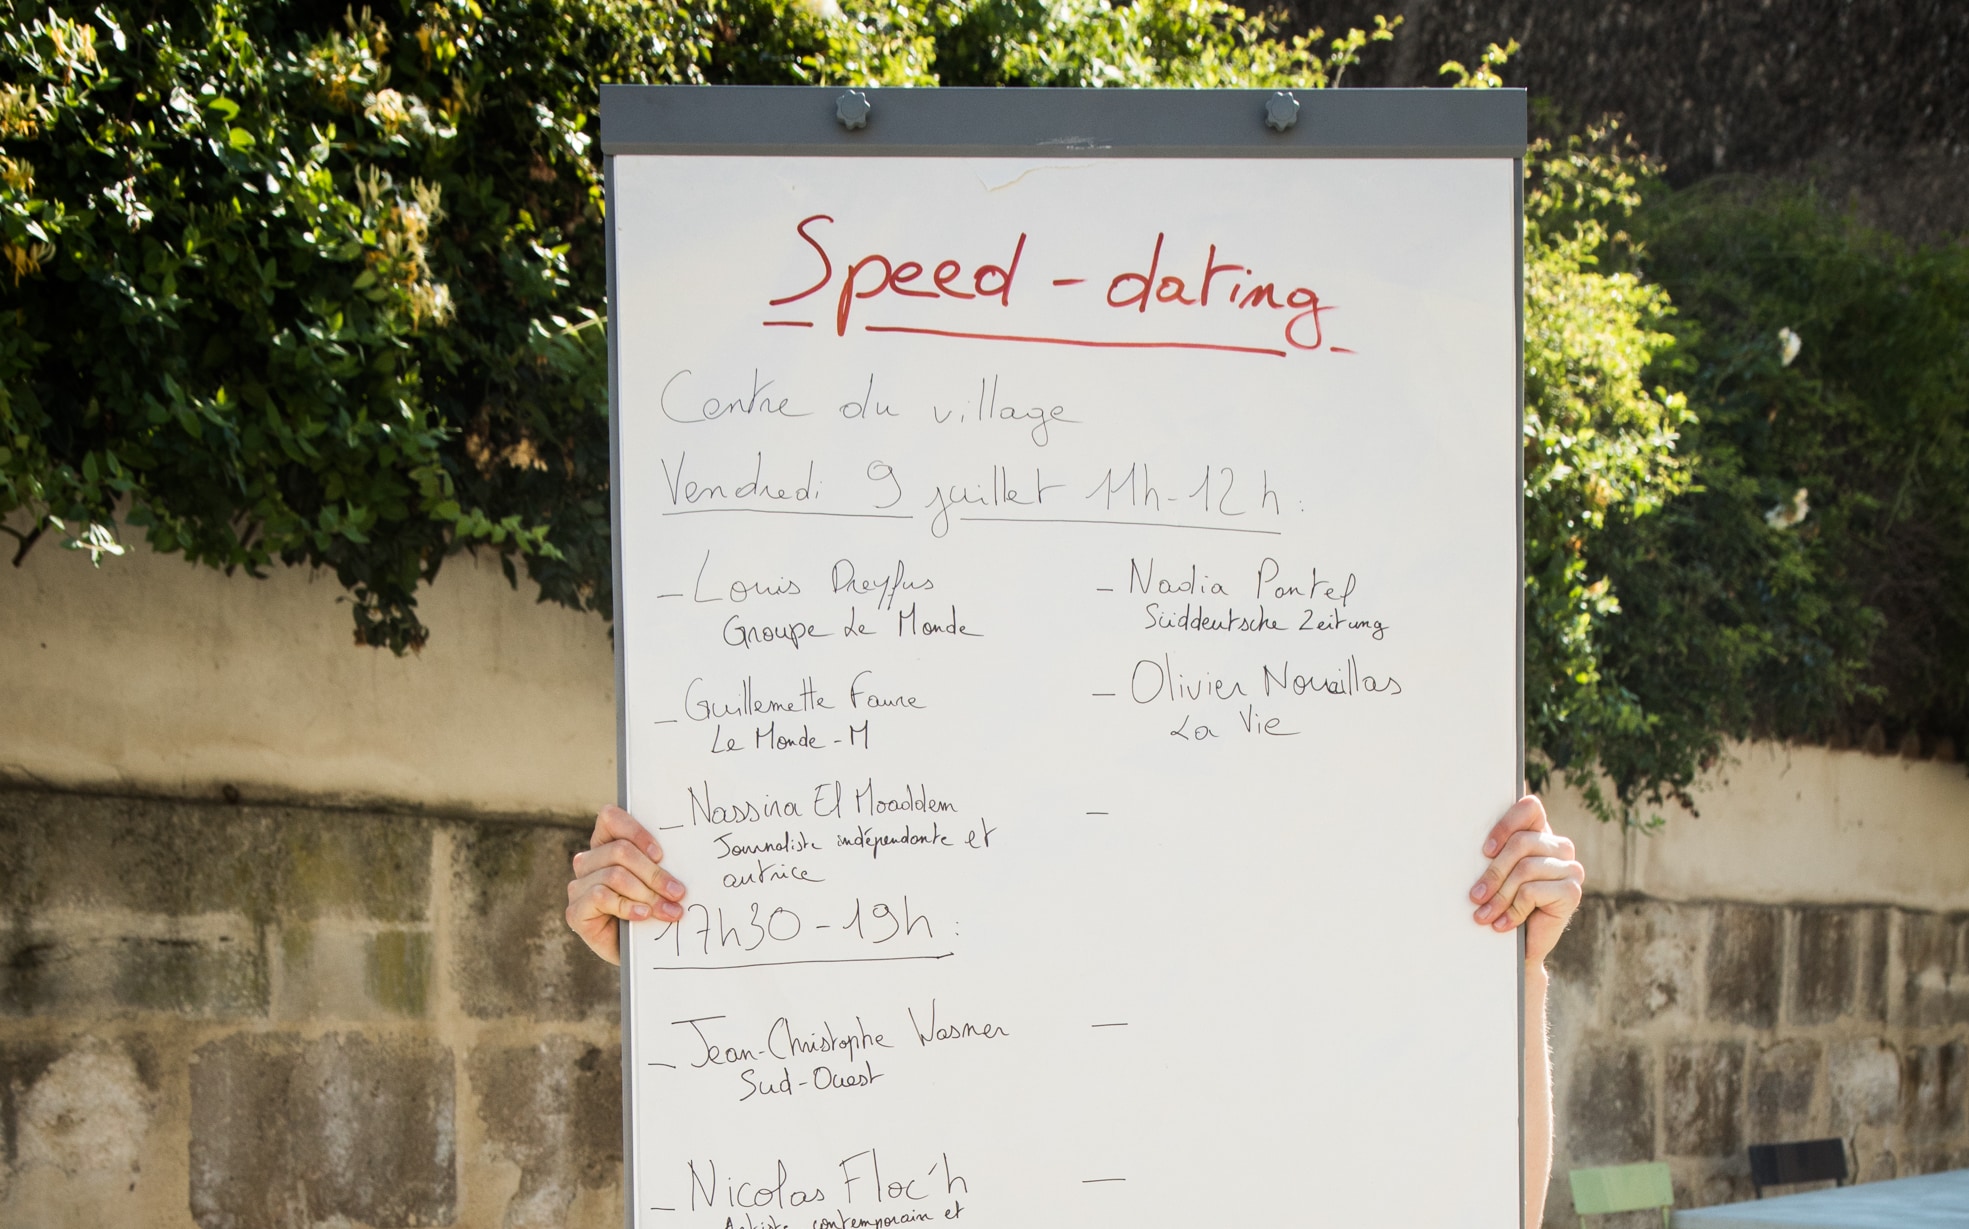 Speed-dating
Centre du village
Vendredi 9 juillet 11h-12h:
- Louis Dreyfus
Groupe Le Monde
- Guillemette Faure
Le Monde - M
- Nassira El Moaddem
Journaliste indépendante et
autrice
- Nadia Pantel
Süddeutsche Zeitung
- Olivier Nouaillas
La Vie
-
17h30-19h:
- Jean-Christophe Wasner
Sud-Ouest
-
- Nicolas Floc'h
Artiste contemporain et
-